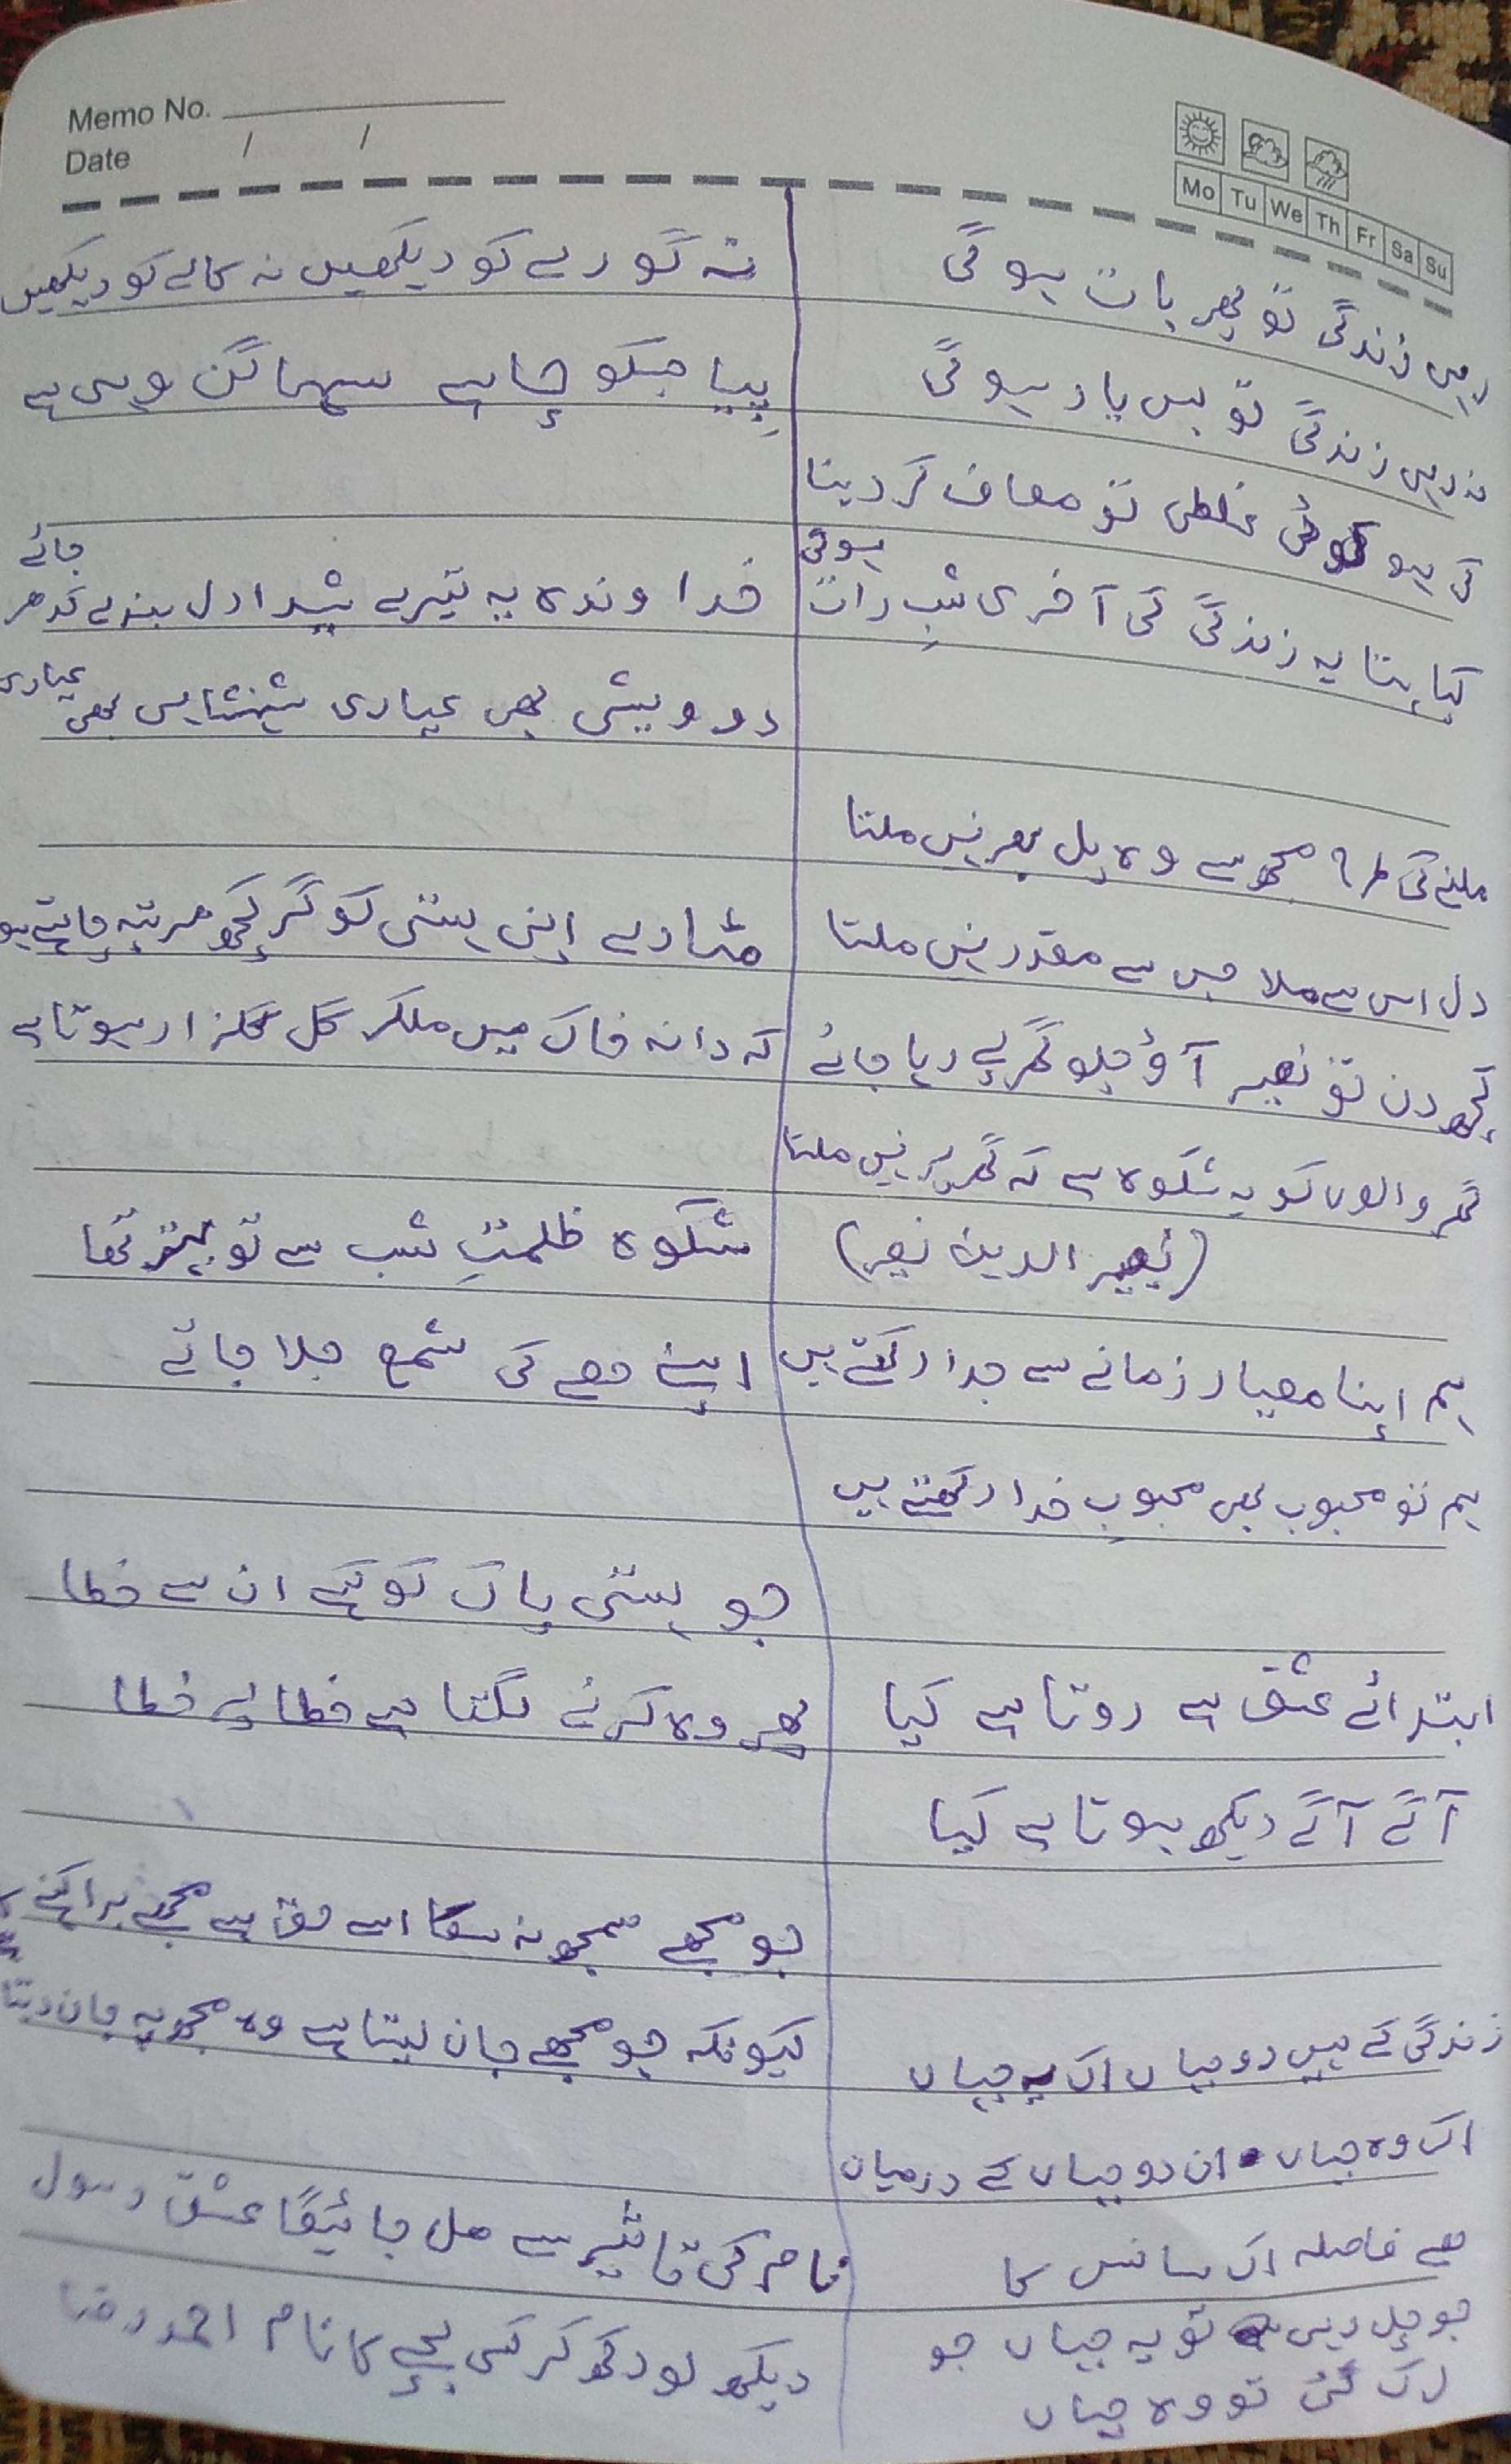 Memo No.
Date / /
Mo Tu We Th Fr Sa Su
رہی زندگی تو پھر بات ہو گی
نہ رہی زندگی تو بس یاد ہو گی
کی ہو کوئی غلطی تو معاف کر دینا
کیا پتا یہ زندگی کی آخری شبِ رات ہو گی
ملنے کی طرح مجھ سے وہ پل بھر نہیں ملتا
دل اس سے ملا جس سے مقدر نہیں ملتا
کچھ دن تو نصیر آؤ چلو گھر پے رہا جائے
گھر والوں کو یہ شکوہ ہے کہ گھر پر نہیں ملتا
(نصیر الدین نصیر)
ہم اپنا معیار زمانے سے جدا رکھتے ہیں
ہم تو محبوب بھی محبوبِ خدا رکھتے ہیں
ابتدائے عشق ہے روتا ہے کیا
آگے آگے دیکھ ہوتا ہے کیا
زندگی کے ہیں دو جہاں اک یہ جہاں
اک وہ جہاں ان دو جہاں کے درمیاں
ھے فاصلہ اک سانس کا
جو چل رہی تو یہ جہاں جو
رک گئی تو وہ جہاں
نہ گورے کو دیکھیں نہ کالے کو دیکھیں
پیا جسکو چاہے سہاگن وہی ہے
خدا وندہ یہ تیرے سدا دل بندے کدھر جائے
درویشی بھی عیاری شہنشاہی بھی عیاری
مٹا دے اپنی ہستی کو گر کچھ مرتبہ چاہتے ہو
کہ دانہ خاک میں ملکر گل گلزار ہوتا ہے
شکوہ ظلمتِ شب سے تو بہتر تھا
اپنے حصے کی شمع جلا جاتے
جو ہستی پاک کو کہے ان سے خطا
پھر وہ کرنے لگتا ہے خطا پے خطا
جو مجھے سمجھ نہ سکا اسے حق ہے مجھے برا کہنے کا
کیونکہ جو مجھے جان لیتا ہے وہ مجھ پہ جان دیتا
نام کی تاثیر سے مل جائیگا عشق رسول
دیکھ لو رکھ کر کسی بچے کا نام احمد رضا